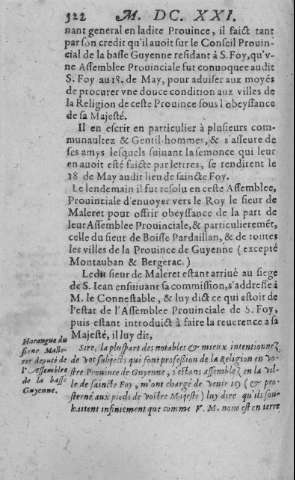 322 M. DC. XXI.
nant general en ladite Prouince, il faict tant
par son credit qu'il auoit sur le Conseil Prouin-
cial de la basse Guyenne residant à S. Foy, qu'v-
ne Assemblee Prouinciale fut conuoquee audit
S. Foy au 18. de May, pour aduiser aux moyés
de procurer vne douce condition aux villes de
la Religion de ceste Prouince sous l'obeyssance
de sa Majesté.
Il en escrit en particulier à plusieurs com-
munautez & Gentil-hommes, & s'asseure de
ses amys lesquels suiuant la semonce qui leur
en auoit esté faicte par lettres, se rendirent le
18 de May audit lieu de saincte Foy.
Le lendemain il fut resolu en ceste Assemblee,
Prouinciale d'enuoyer vers le Roy le sieur de
Maleret pour offrir obeyssance de la part de
leur Assemblee Prouinciale, & particulieremét,
celle du sieur de Boisse Pardaillan, & de toutes
les villes de la Prouince de Guyenne (excepté
Montauban & Bergerac.)
Ledit sieur de Maleret estant arriué au siege
de S. Iean ensuiuant sa commission, s'addresse à
M. le Connestable, & luy dict ce qui estoit de
l'estat de l'Assemblee Prouinciale de S. Foy,
puis estant introduict à faire la reuerence à sa
Majesté, il luy dit,
Harangue du
sieur Malle-
ret deputé de
l'Assemblée
de la basse
Guyenne.
Sire, la pluspart des notables & mieux intentionnez
de vos subjects qui font profession de la Religion en vo-
stre Prouince de Guyenne, s'estans assemblez en la vil-
le de saincte Foy, m'ont chargé de venir icy (& pro-
sterné aux pieds de vostre Majesté) luy dire qu'ils sou-
haittent infiniement que comme V. M. nous est en terre